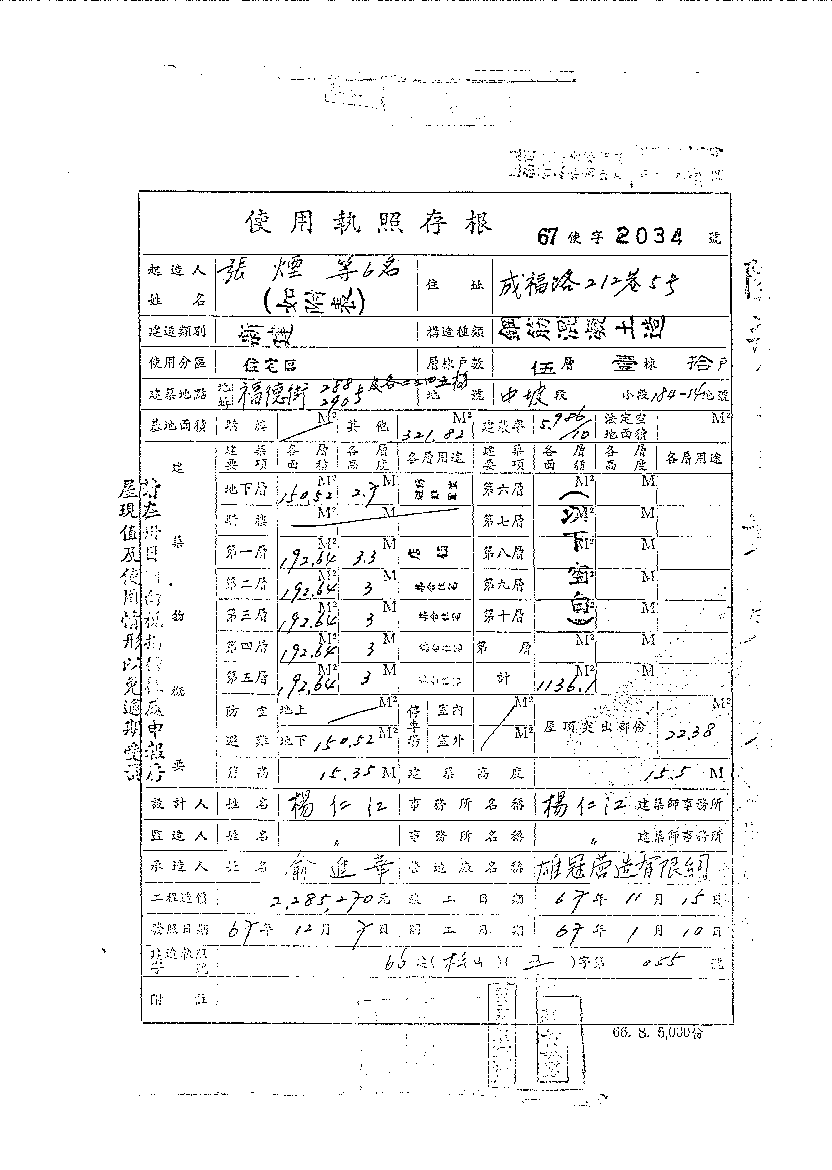 使用執照存根 67使字2034號
起造人姓名 張煙等6名(如附表) 住址 成福路212巷5号
建造類別 構造種類 鋼筋混凝土造
使用分區 住宅區 層棟戶數 伍層 壹棟 拾戶
建築地點 福德街 288 290号 地號 中坡段 小段184-14地號
基地面積 騎樓 M² 其他 321.82 M² 建蔽率 5.986/10 法定空地面積 M²
建築物概要
建築要項 各層面積 各層高度 各層用途 建築要項 各層面積 各層高度 各層用途
地下層 150.52 M² 2.7 M 第六層 M² M
騎樓 M² M 第七層 M² M
第一層 192.64 M² 3.3 M 第八層 M² M
第二層 192.64 M² 3 M 第九層 M² M
第三層 192.64 M² 3 M 第十層 M² M
第四層 192.64 M² 3 M 第 層 M² M
第五層 192.64 M² 3 M 計 1136.1 M² M
(以下空白)
防空避難 地上 M² 停車場 室內 M² 屋頂突出部份 22.38 M²
地下 150.52 M² 室外 M²
簷高 15.35 M 建築高度 15.5 M
設計人 姓名 楊仁江 事務所名稱 楊仁江 建築師事務所
監造人 姓名 〃 事務所名稱 〃 建築師事務所
承造人 姓名 俞進華 營造廠名稱 雄冠營造有限公司
工程造價 2,285,270元 竣工日期 67年11月15日
發照日期 67年12月7日 開工日期 67年1月10日
建造執照字號 66建(松山)(五)字第055號
附註
66. 8. 5,000份
屋現值及使用情形以免逾期受罰